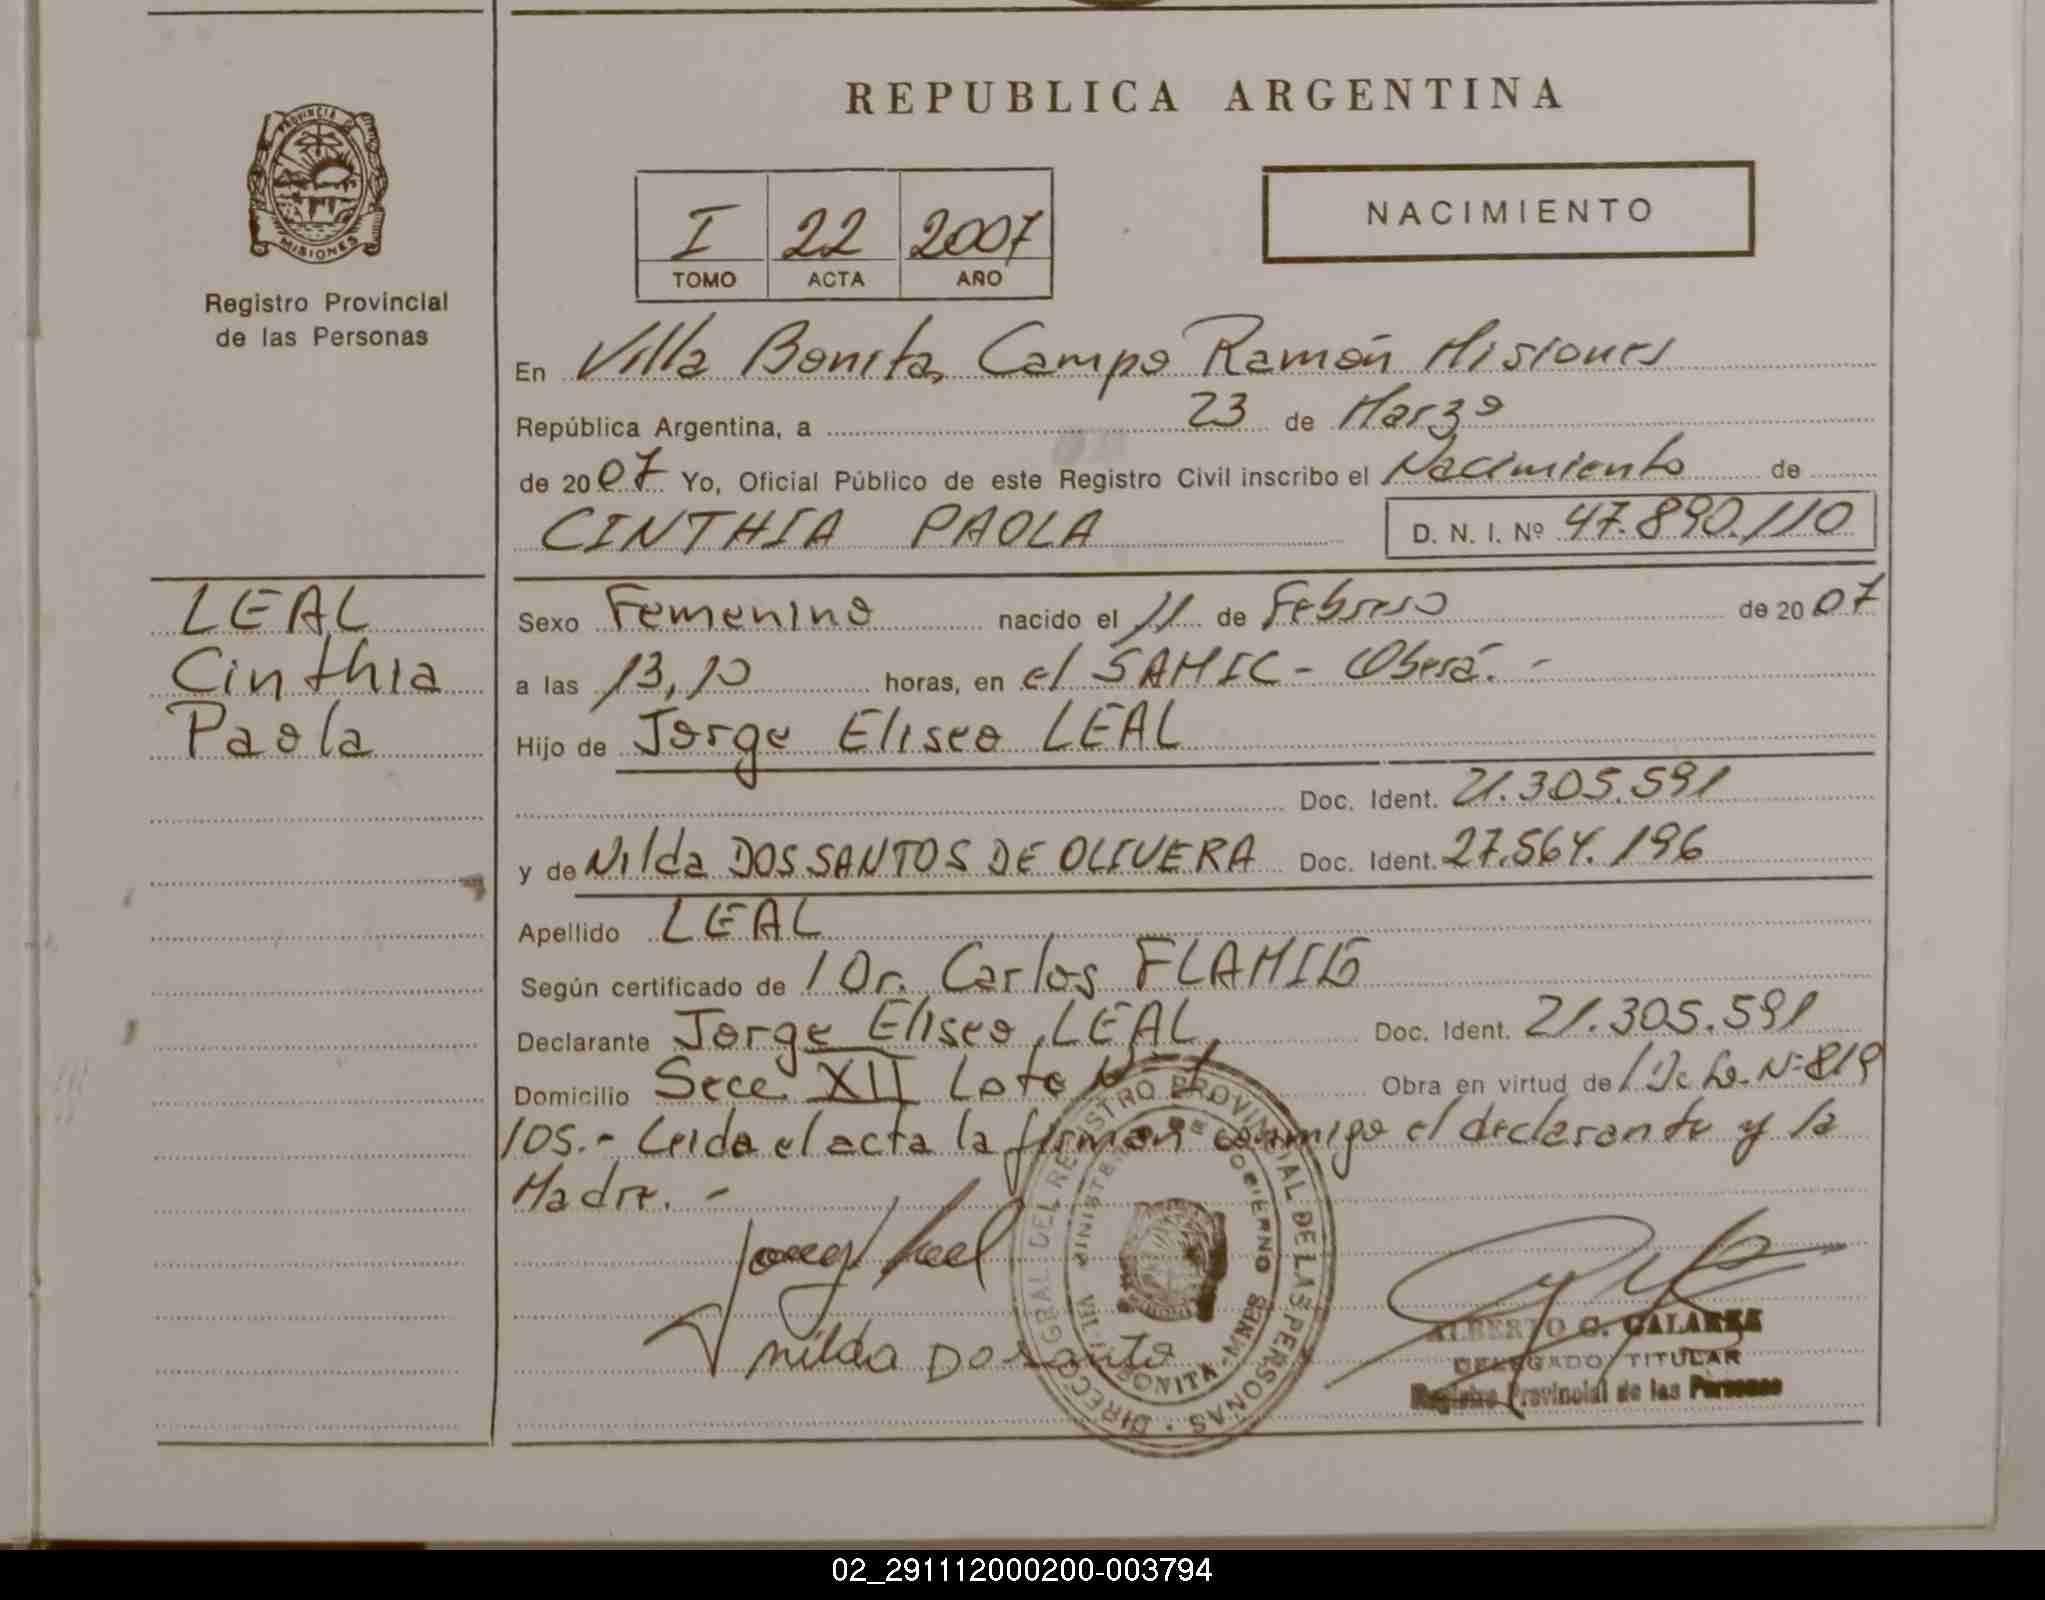 REPUBLICA ARGENTINA
PROVINCIA DE
MISIONES
Registro Provincial
de las Personas
I 22 2007
TOMO ACTA AÑO
NACIMIENTO
En Villa Bonita, Campo Ramón Misiones
República Argentina, a 23 de Marzo
de 2007 Yo, Oficial Público de este Registro Civil inscribo el Nacimiento de
CINTHIA PAOLA D. N. I. Nº 47.890.110
LEAL
Cinthia
Paola
Sexo Femenino nacido el 11 de Febrero de 2007
a las 13,10 horas, en el SAMIC - Oberá. -
Hijo de Jorge Eliseo LEAL
Doc. Ident. 21.305.591
y de Nilda DOS SANTOS DE OLIVERA Doc. Ident. 27.564.196
Apellido LEAL
Según certificado de Dr. Carlos
Declarante Jorge Eliseo LEAL, Doc. Ident. 21.305.591
Domicilio Secc. XII Lote Obra en virtud de
105.- Leida el acta la firman conmigo el declarante y la
Madre. -
nilda Do santo
DIRECC. GRAL. DEL REGISTRO PROVINCIAL DE LAS PERSONAS
MINISTERIO DE GOBIERNO
VILLA BONITA - MNES
ALBERTO G. GALARZA
DELEGADO TITULAR
Registro Provincial de las Personas
02_291112000200-003794